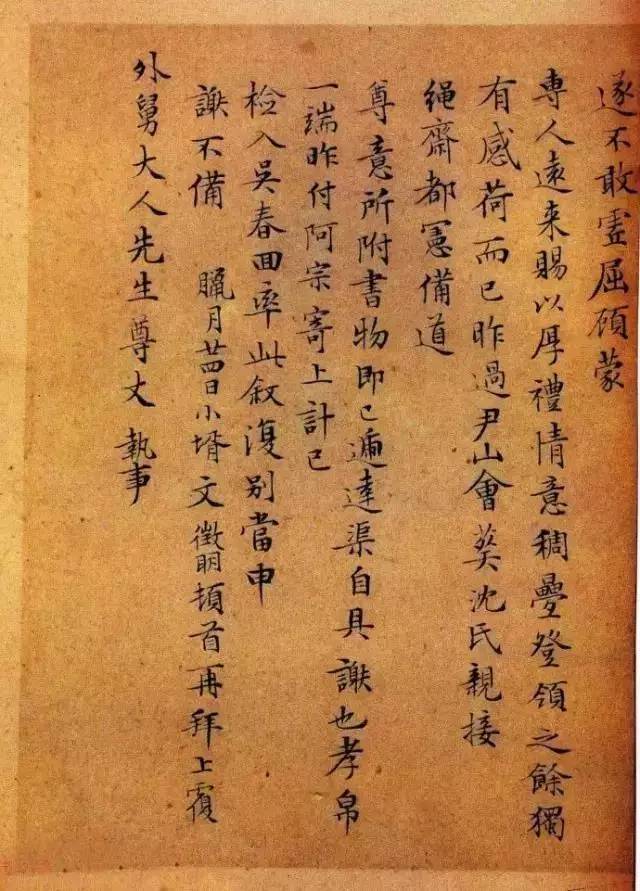 遂不敢虚屈顾蒙
専人遠来賜以厚禮情意稠疊登領之餘獨
有感荷而已昨過尹山會葬沈氏親接
绳齋都憲備道
尊意所附書物即已逓達渠自具謝也孝帛
一端昨付阿宗寄上計已
檢入吴春回率此叙復别當申
謝不備 臘月廿四日小壻文徵明頓首再拜上覆
外舅大人先生尊丈執事